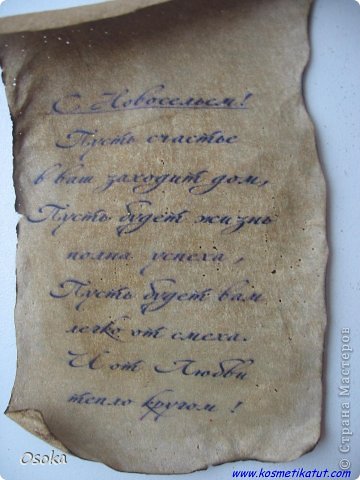 С Новосельем!
Пусть счастье
в ваш заходит дом,
Пусть будет жизнь
полна успеха,
Пусть будет вам
легко от смеха.
И от Любви
тепло кругом!
Osoka
www.kosmetikatut.com
© Страна Мастеров